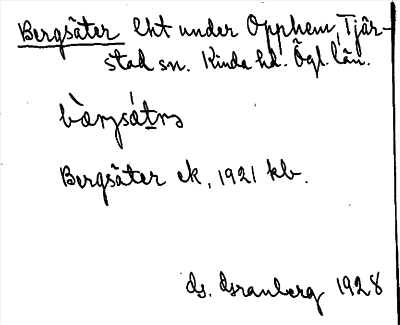 Bergsäter lht under Opphem, Tjär-
stad sn. Kinda hd. Ögl. län.
bærjsátrs
Bergsäter ek, 1921 kb.
ds. Granberg 1928